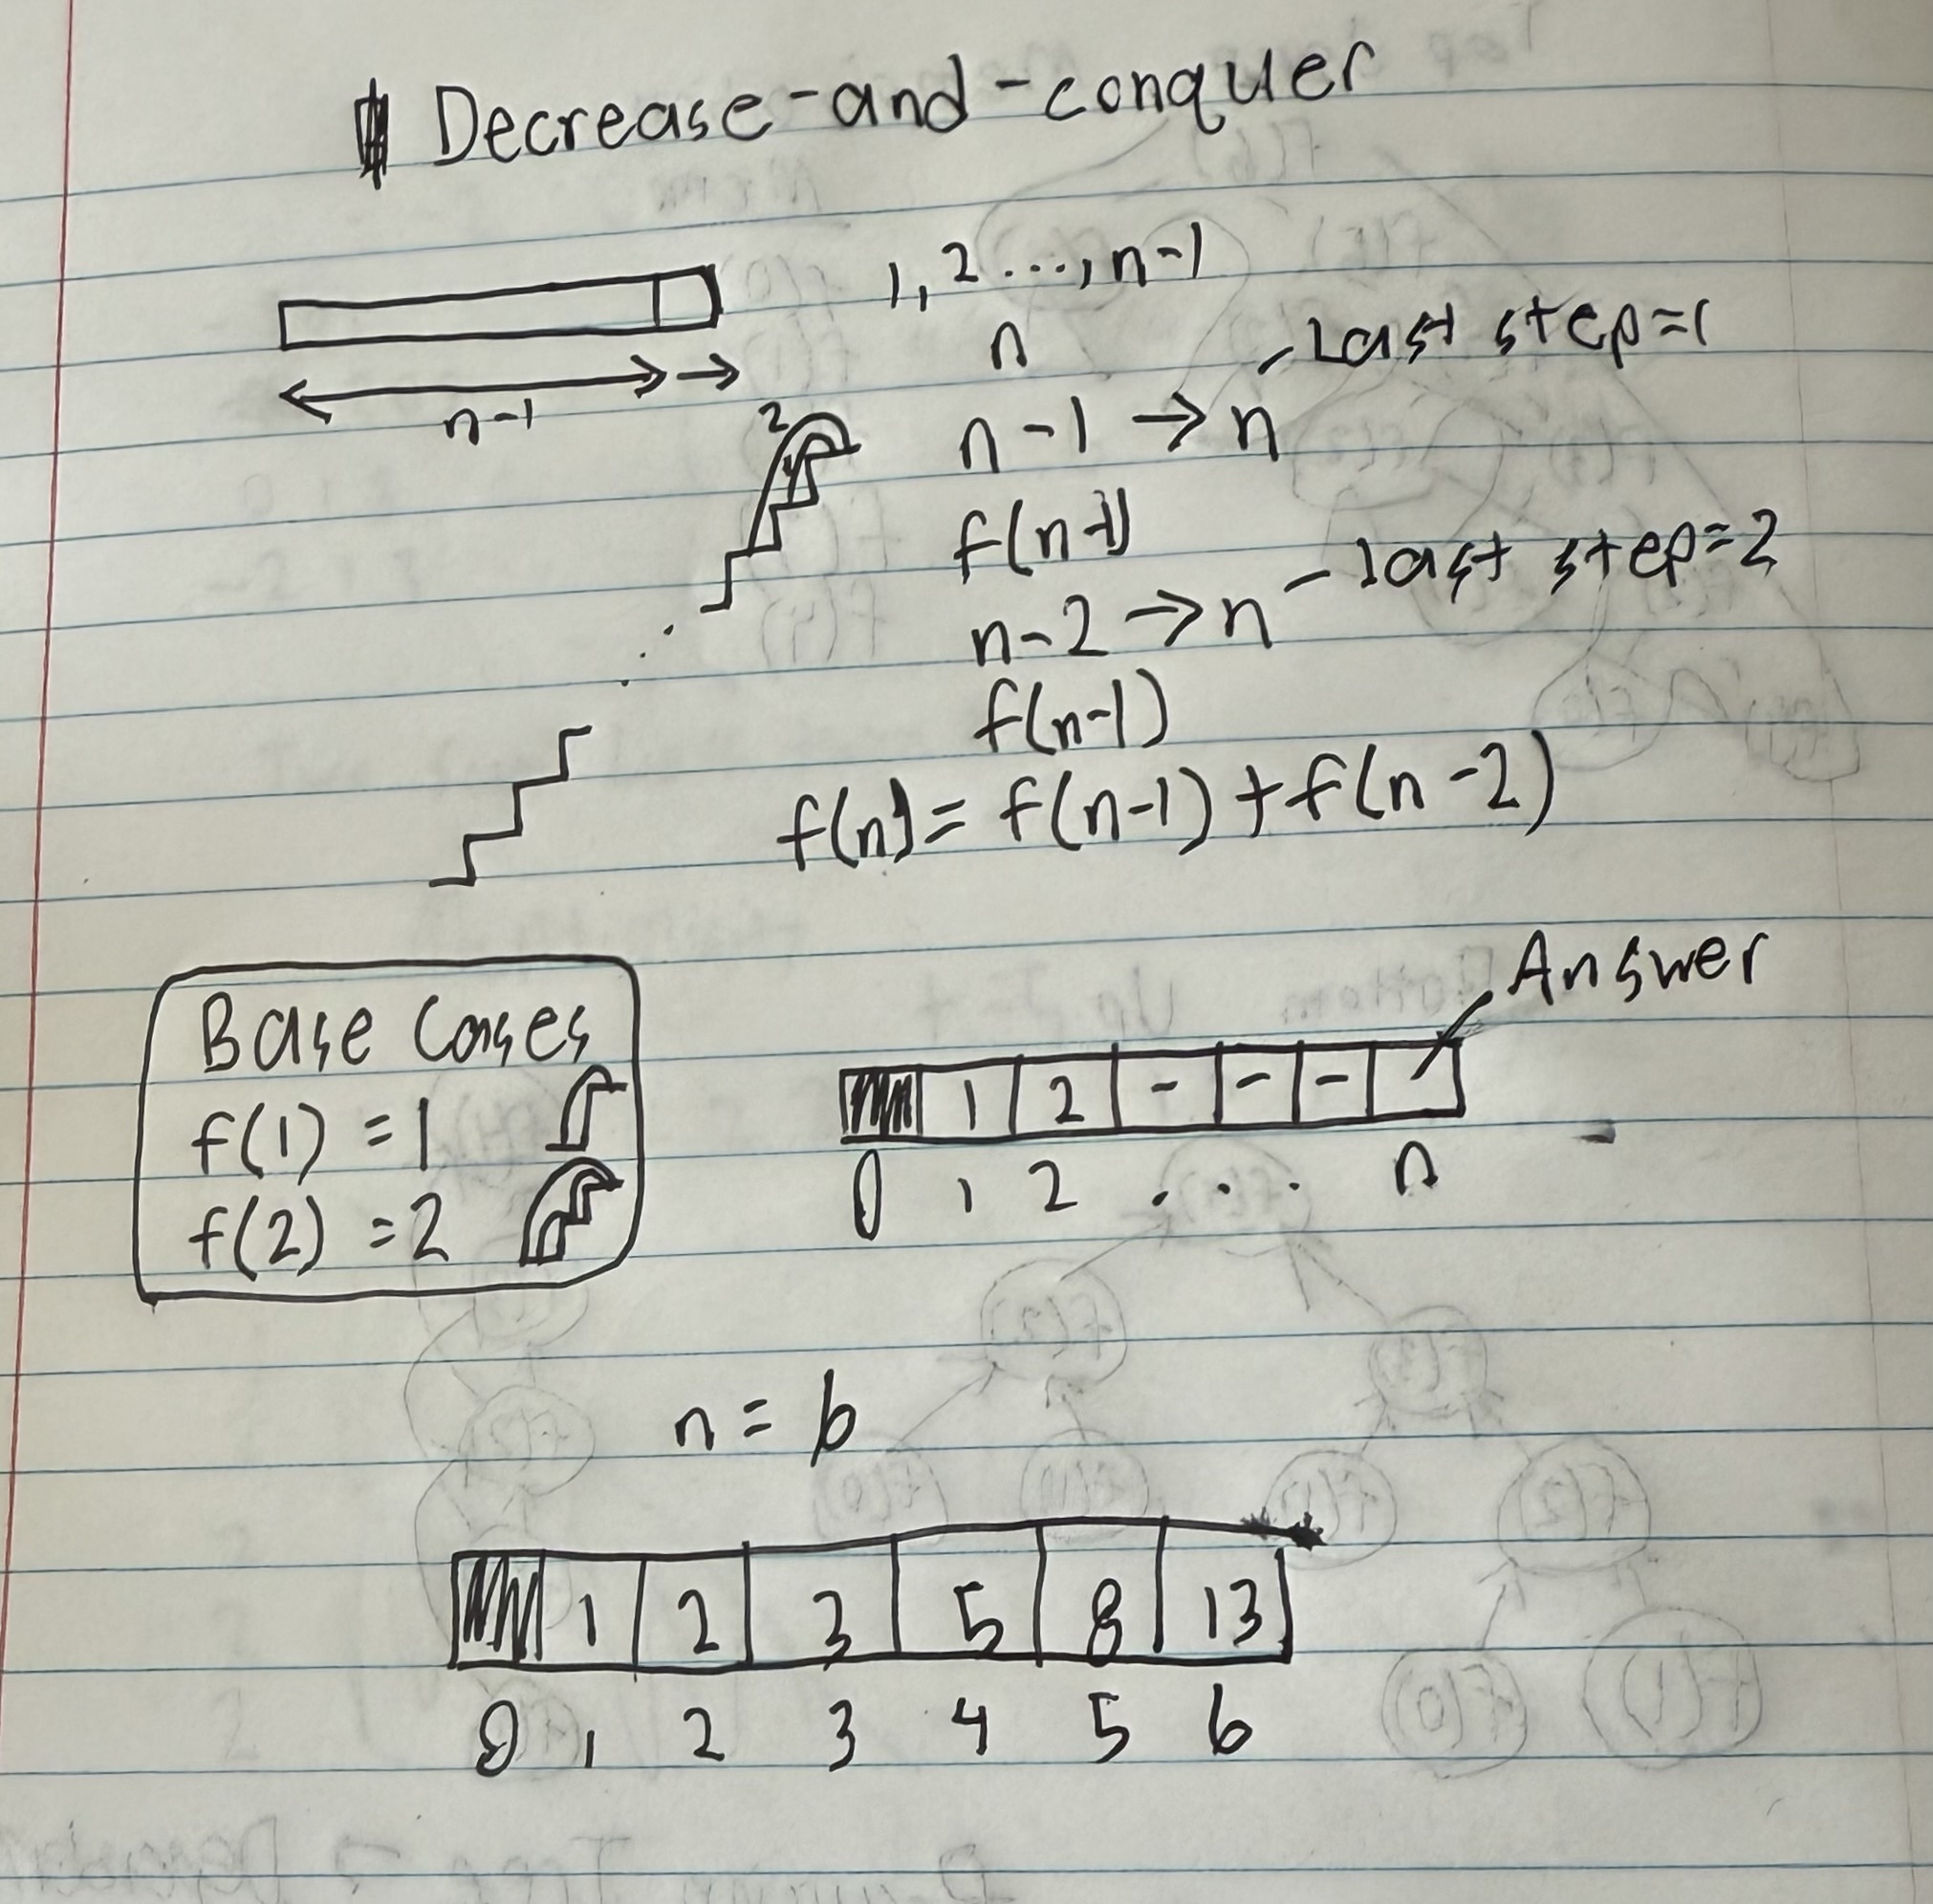 Decrease-and-conquer
1, 2 ..., n-1
n
n-1
n-1 → n - Last step=1
2
1
f(n-1)
n-2 → n - last step=2
f(n-1)
f(n) = f(n-1) + f(n-2)
Base Cases
f(1) = 1
f(2) = 2
Answer
1 2 - - -
0 1 2 . . . n
n = 6
1 2 3 5 8 13
0 1 2 3 4 5 6